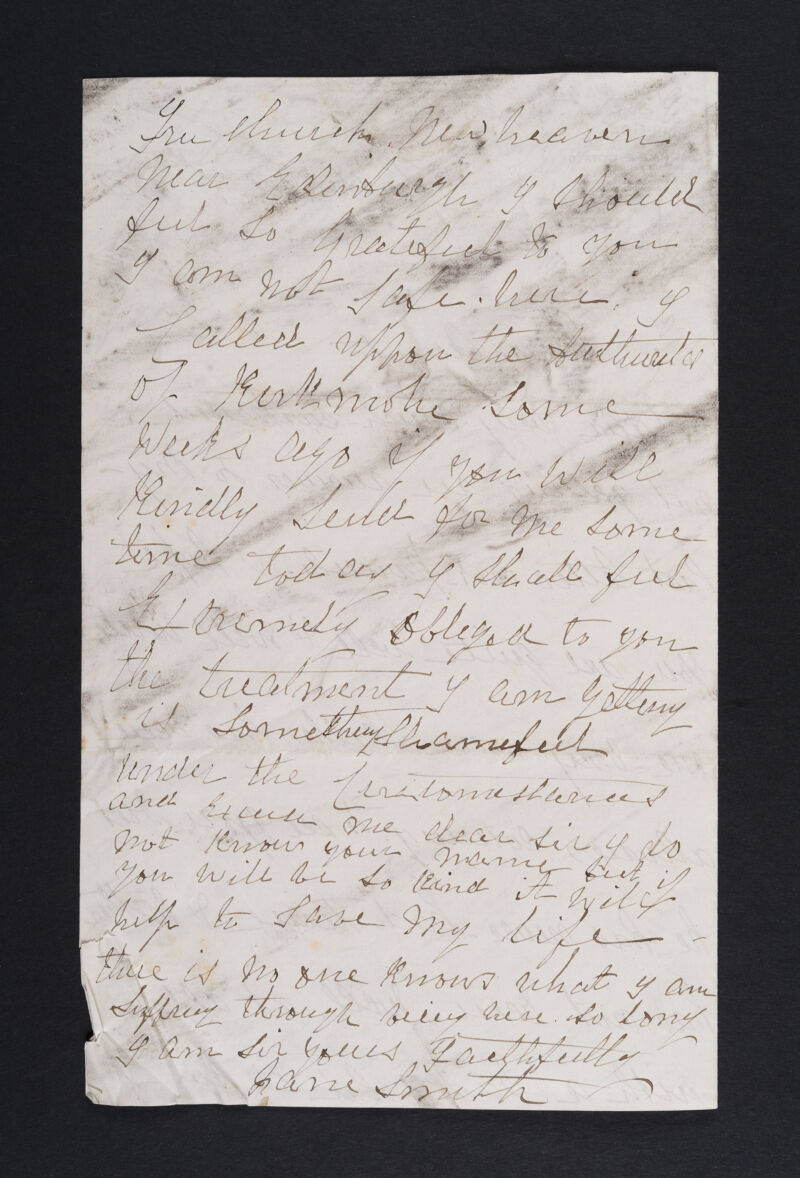 Free Church New heaven
Near Edinburgh I should
feel so gratefull to you
I am not safe here. I
Called uppon the
of Kirkmohe some
Weeks ago if you will
Kindly Send for me some
time today I shall feel
Extremely obleged to you
the treatment I am getting
is something Shamefull
under the Circumstances
and Excuse me dear sir I do
not know your name but if
you will be so kind it will
help to Save my life -
there is no one knows what I am
Suffrey through being here so long
I am sir yours Faithfully
Jane Smith